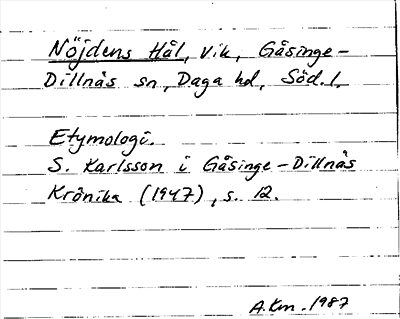 Nöjdens Hål, vik, Gåsinge-
Dillnäs sn, Daga hd, Söd. l.
Etymologi.
S. Karlsson i Gåsinge-Dillnäs
Krönika (1947), s. 12.
A.Km. 1987